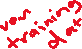 your
training
data